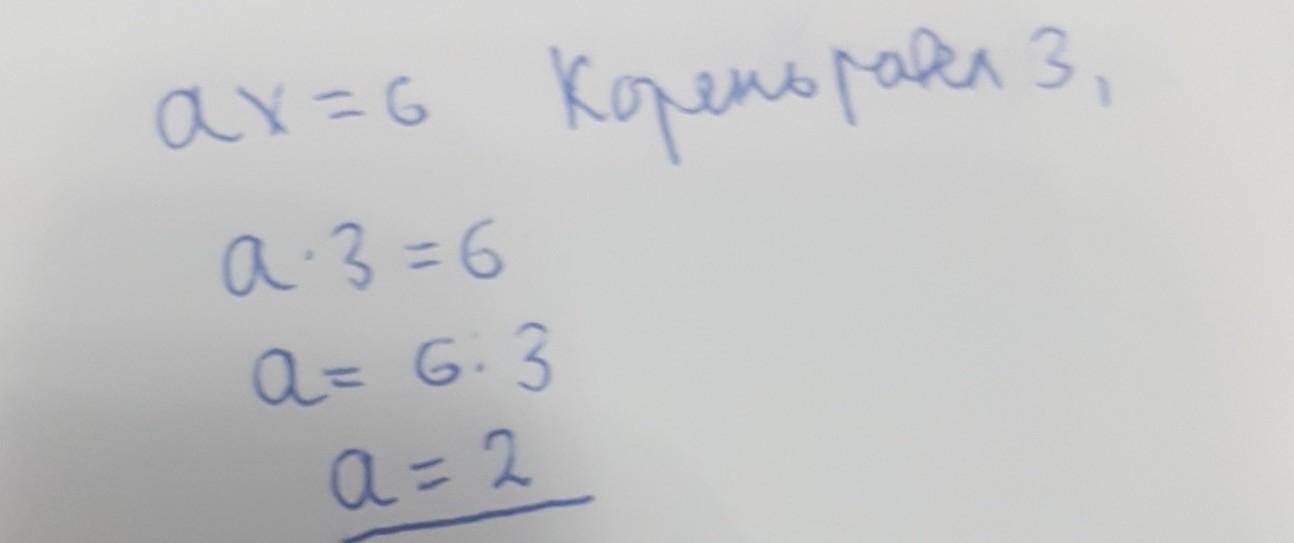 ax = 6 Корень равен 3,
a · 3 = 6
a = 6 : 3
a = 2